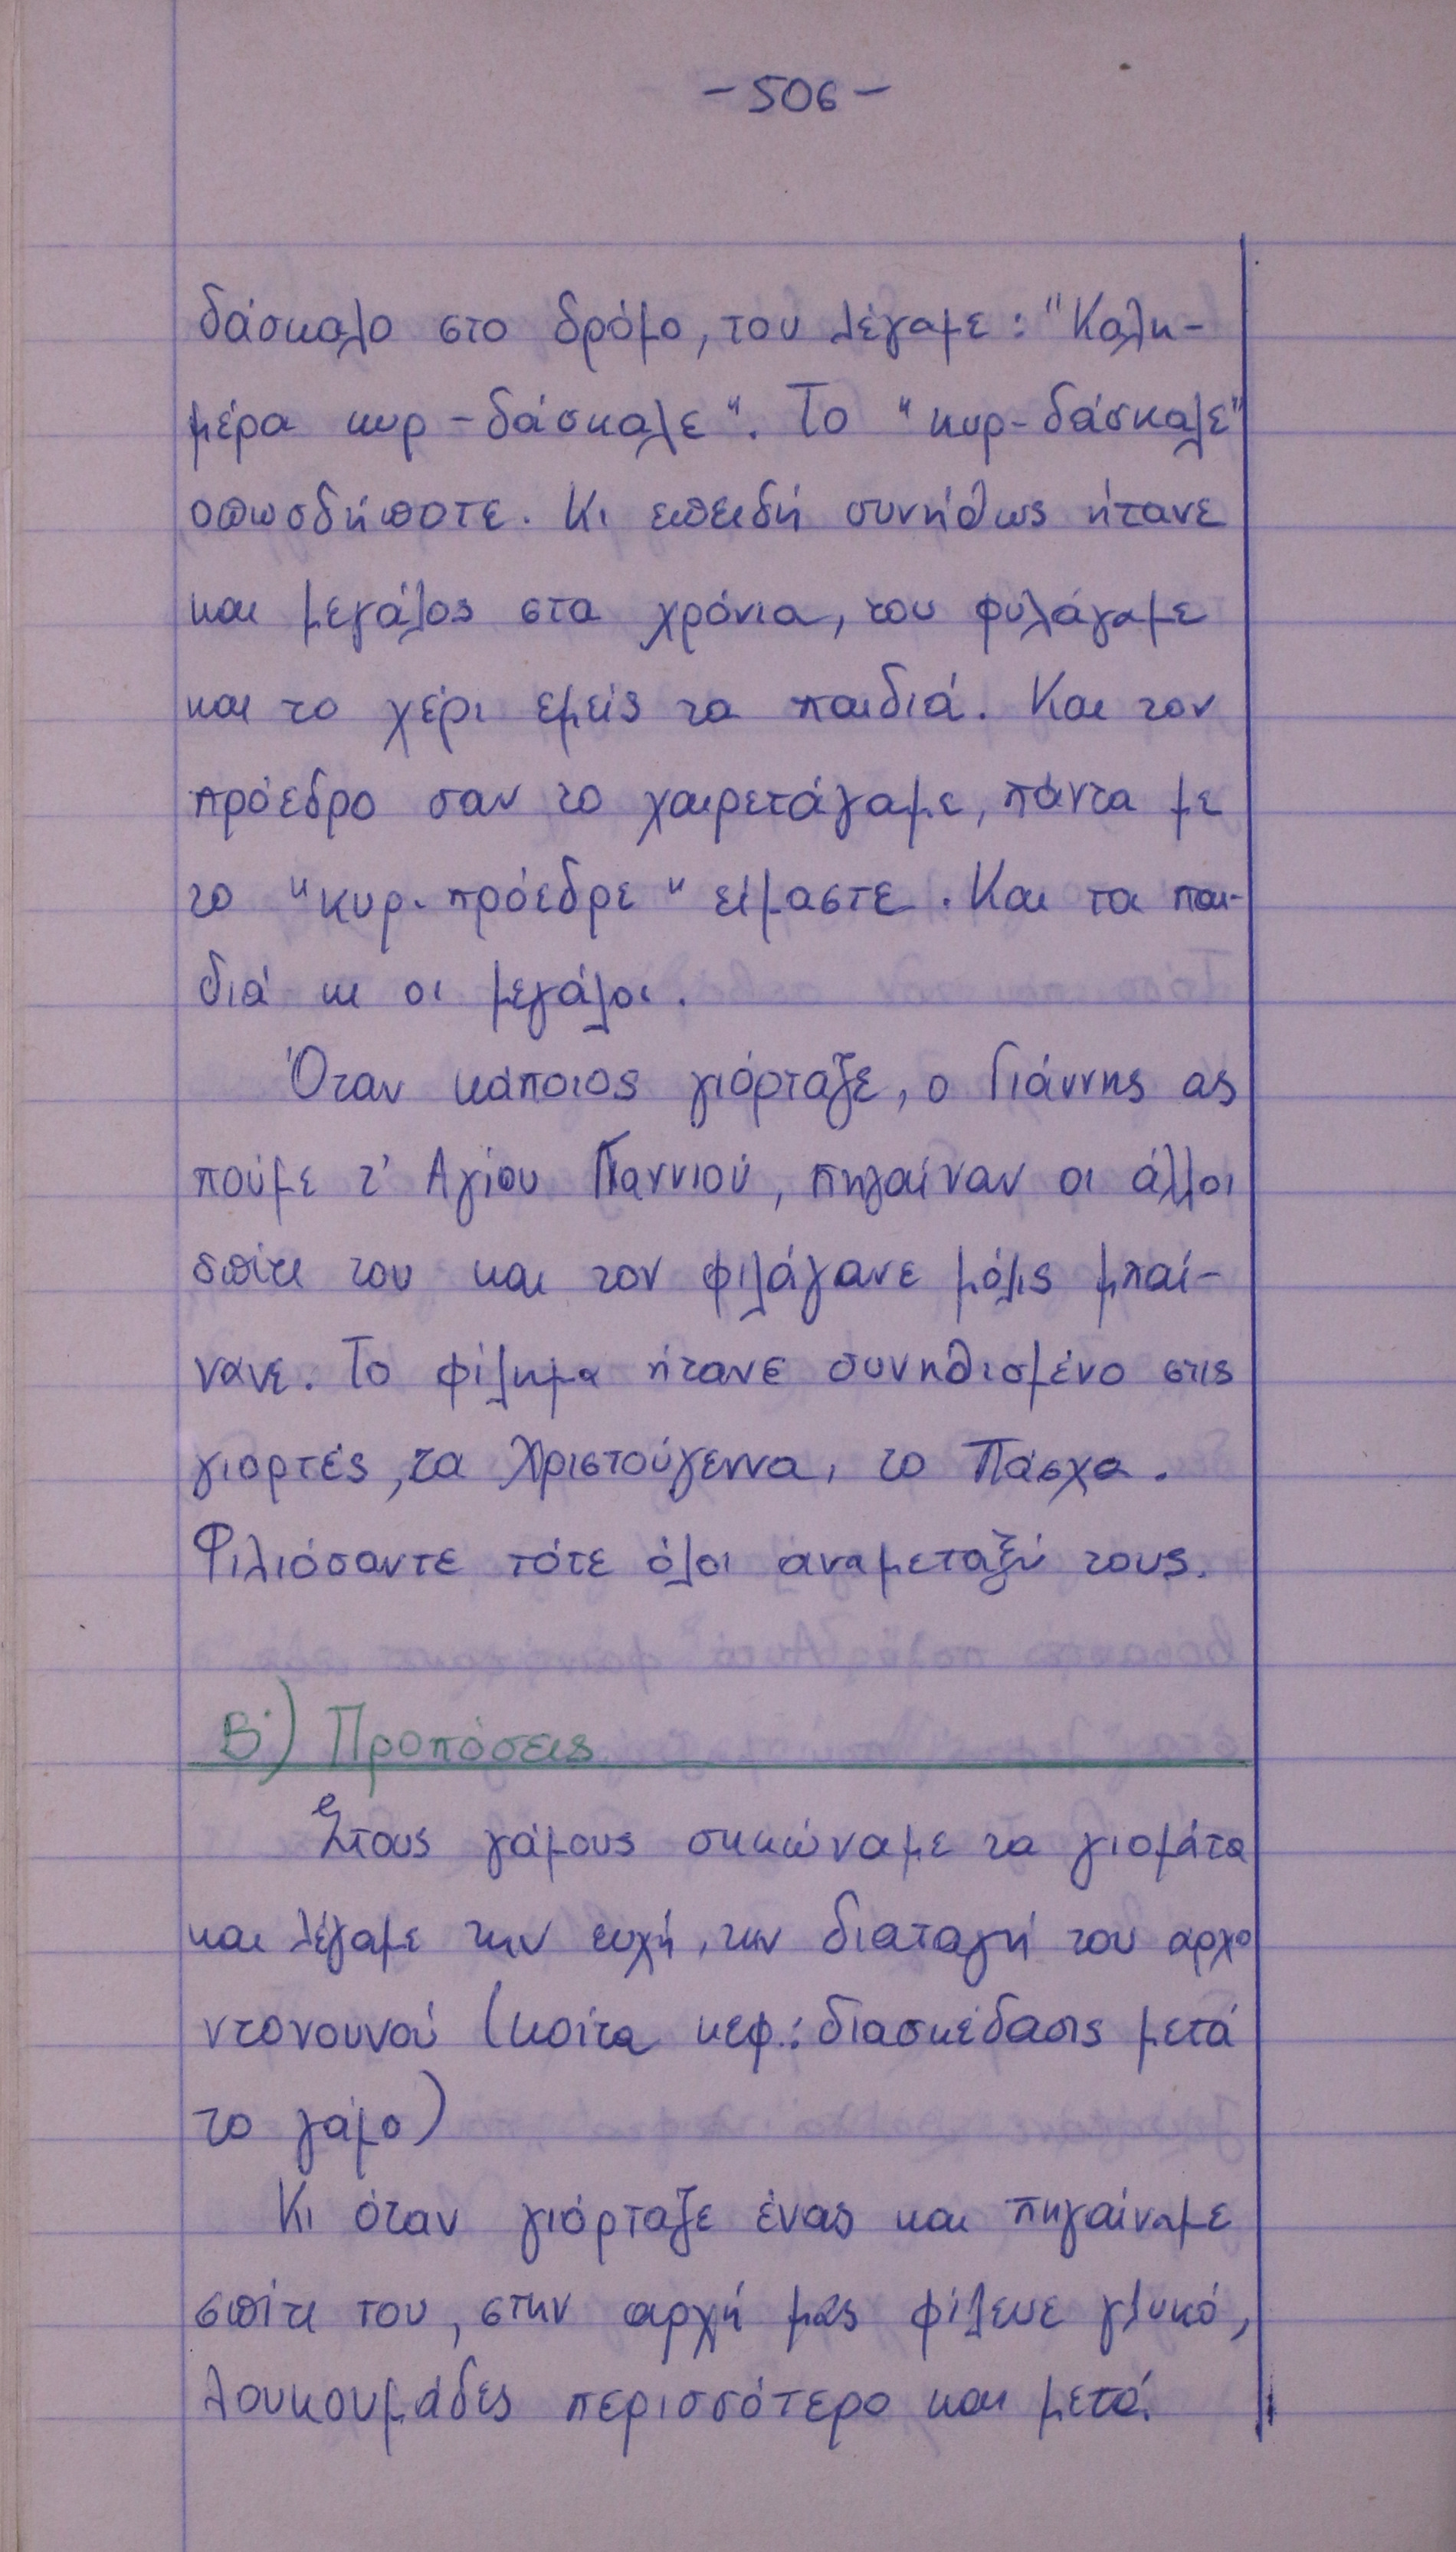 -506-
δάσκαλο στο δρόμο, του λέγαμε: "Καλη-
μέρα κυρ-δάσκαλε". Το "κυρ-δάσκαλε"
οπωσδήποτε. Κι επειδή συνήθως ήτανε
και μεγάλος στα χρόνια, του φυλάγαμε
και το χέρι εμείς τα παιδιά. Και τον
πρόεδρο σαν το χαιρετάγαμε, πάντα με
το "κυρ-πρόεδρε" είμαστε. Και τα παι-
διά κι οι μεγάλοι.
Όταν κάποιος γιόρταζε, ο Γιάννης ας
πούμε τ' Αγίου Γιαννιού, πηγαίναν οι άλλοι
σπίτι του και τον φιλάγανε μόλις μπαί-
νανε. Το φίλημα ήτανε συνηθισμένο στις
γιορτές, τα Χριστούγεννα, το Πάσχα.
Φιλιόσαντε τότε όλοι αναμεταξύ τους.
Β΄) Προπόσεις
Στους γάμους σηκώναμε τα γιομάτα
και λέγαμε την ευχή, την διαταγή του αρχο
ντονουνού (κοίτα κεφ.: διασκέδασις μετά
το γάμο)
Κι όταν γιόρταζε ένας και πηγαίναμε
σπίτι του, στην αρχή μας φίλευε γλυκό,
λουκουμάδες περισσότερο και μετά.